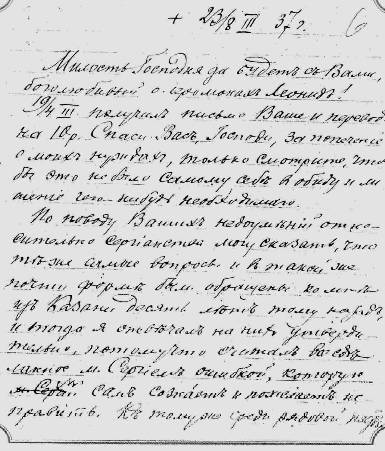 + 23/8 III 37 г. 6
Милость Господня да будетъ съ Вами,
боголюбивый о. іеромонахъ Леонидъ!
19/4 III получилъ письмо Ваше и переводъ
на 10 р. Спаси Васъ, Господи, за попеченіе
о моихъ нуждахъ, только смотрите, что
бы это не было самому себѣ въ обиду и ли
шеніе чего-нибудь необходимаго.
По поводу Вашихъ недоумѣній отно
сительно сергіанства могу сказать, что
тѣ же самые вопросы и въ такой же
почти формѣ были обращены ко мнѣ
изъ Казани десять лѣтъ тому назадъ,
и тогда я отвѣчалъ на нихъ утверди
тельно, потому что считалъ все сдѣ
ланное м. Сергіемъ ошибкой, которую
онъ самъ сознаетъ и пожелаетъ ис
править. Къ тому же среди рядовой